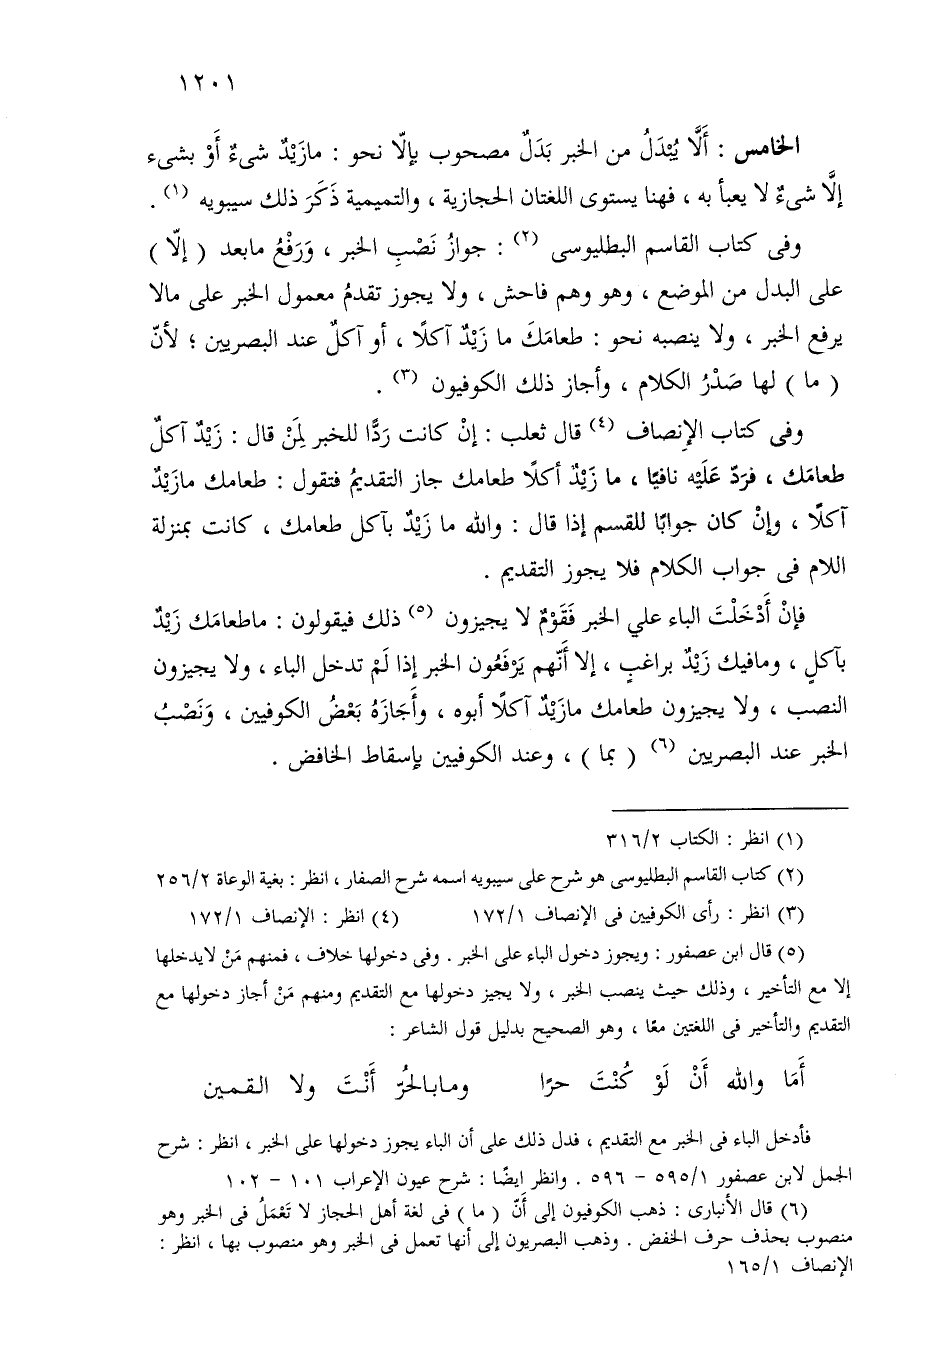 ١٢٠١
الخامس : أَلَّا يُبْدَلُ من الخبر بَدَلٌ مصحوب بإلّا نحو : مازَيْدٌ شىءٌ أَوْ بشىء
إلَّا شىءٌ لا يعبأ به ، فهنا يستوى اللغتان الحجازية ، والتميمية ذَكَرَ ذلك سيبويه (١) .
وفى كتاب القاسم البطليوسى (٢) : جوازُ نَصْبِ الخبر ، وَرَفْعُ مابعد ( إلّا )
على البدل من الموضع ، وهو وهم فاحش ، ولا يجوز تقدمُ معمول الخبر على مالا
يرفع الخبر ، ولا ينصبه نحو : طعامَكَ ما زَيْدٌ آكلًا ، أو آكلٌ عند البصريين ؛ لأنّ
( ما ) لها صَدْرُ الكلام ، وأجاز ذلك الكوفيون (٣) .
وفى كتاب الإنصاف (٤) قال ثعلب : إنْ كانت ردًّا للخبر لِمَنْ قال : زَيْدٌ آكلٌ
طعامَك ، فرَدّ عَلَيْه نافيًا ، ما زَيْدٌ أكلًا طعامك جاز التقديمُ فتقول : طعامك مازَيْدٌ
آكلًا ، وإنْ كان جوابًا للقسم إذا قال : والله ما زَيْدٌ بآكل طعامك ، كانت بمنزلة
اللام فى جواب الكلام فلا يجوز التقديم .
فإنْ أَدْخَلْتَ الباء علي الخبر فَقَوْمٌ لا يجيزون (٥) ذلك فيقولون : ماطعامَك زَيْدٌ
بآكلٍ ، ومافيك زَيْدٌ براغبٍ ، إلا أَنّهم يَرْفَعُون الخبر إذا لَمْ تدخل الباء ، ولا يجيزون
النصب ، ولا يجيزون طعامك مازَيْدٌ آكلًا أبوه ، وأَجَازَهُ بَعْضُ الكوفيين ، وَنَصْبُ
الخبر عند البصريين (٦) ( بما ) ، وعند الكوفيين بإسقاط الخافض .
(١) انظر : الكتاب ٣١٦/٢
(٢) كتاب القاسم البطليوسى هو شرح على سيبويه اسمه شرح الصفار ، انظر : بغية الوعاة ٢٥٦/٢
(٣) انظر : رأى الكوفيين فى الإنصاف ١٧٢/١ (٤) انظر : الإنصاف ١٧٢/١
(٥) قال ابن عصفور : ويجوز دخول الباء على الخبر . وفى دخولها خلاف ، فمنهم مَنْ لايدخلها
إلا مع التأخير ، وذلك حيث ينصب الخبر ، ولا يجيز دخولها مع التقديم ومنهم مَنْ أجاز دخولها مع
التقديم والتأخير فى اللغتين معًا ، وهو الصحيح بدليل قول الشاعر :
أَمَا والله أَنْ لَوْ كُنْتَ حرًا ومابالحُرّ أَنْتَ ولا القمين
فأدخل الباء فى الخبر مع التقديم ، فدل ذلك على أن الباء يجوز دخولها على الخبر ، انظر : شرح
الجمل لابن عصفور ٥٩٥/١ – ٥٩٦ . وانظر ايضًا : شرح عيون الإعراب ١٠١ – ١٠٢
(٦) قال الأنبارى : ذهب الكوفيون إلى أَنّ ( ما ) فى لغة أهل الحجاز لا تَعْمَلُ فى الخبر وهو
منصوب بحذف حرف الخفض . وذهب البصريون إلى أنها تعمل فى الخبر وهو منصوب بها ، انظر :
الإنصاف ١٦٥/١